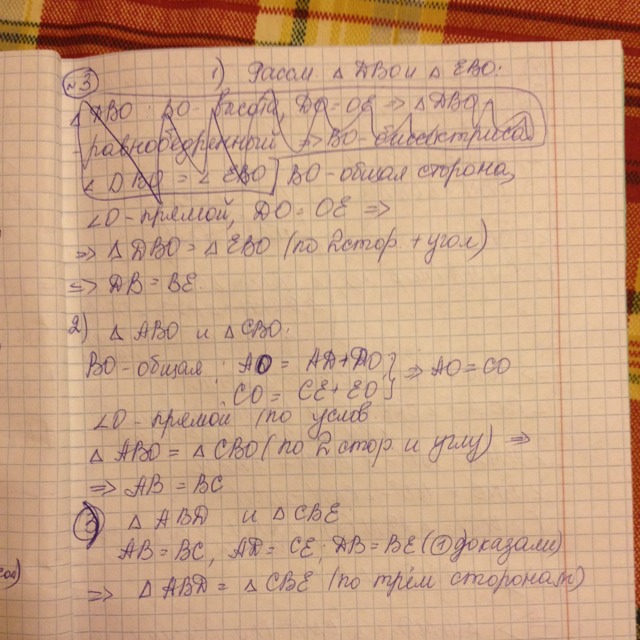 №3
1) Рассм. △ DBO и △ EBO:
△ DBO BO - высота, DO = OE => △ DBO
- равнобедренный => BO - биссектриса
∠ DBO = ∠ EBO BO - общая сторона,
∠O - прямой, DO = OE =>
=> △ DBO = △ EBO (по 2 стор + угол)
=> DB = BE
2) △ ABO и △ CBO:
BO - общая ; AO = AD + DO } => AO = CO
CO = CE + EO }
∠O - прямой (по услов
△ ABO = △ CBO (по 2 стор и углу) =>
=> AB = BC
3) △ ABD и △ CBE
AB = BC, AD = CE; DB = BE (1) доказали)
=> △ ABD = △ CBE (по трём сторонам)